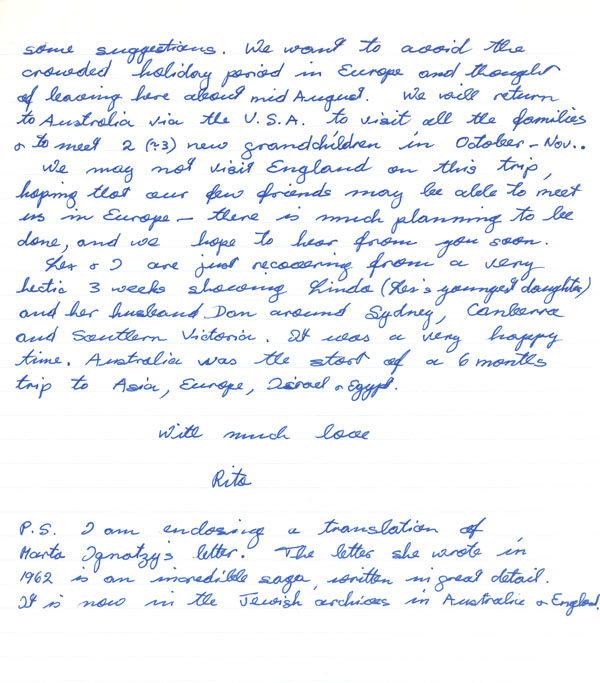 some suggestions. We want to avoid the
crowded holiday period in Europe and thought
of leaving here about mid August. We will return
to Australia via the U.S.A. to visit all the families
& to meet 2 (→3) new grandchildren in October – Nov..
We may not visit England on this trip,
hoping that our few friends may be able to meet
us in Europe – there is much planning to be
done, and we hope to hear from you soon.
Les & I are just recovering from a very
hectic 3 weeks showing Linda (Les's youngest daughter)
and her husband Dan around Sydney, Canberra
and Southern Victoria. It was a very happy
time. Australia was the start of a 6 months
trip to Asia, Europe, Israel & Egypt.
With much love
Rita
P.S. I am enclosing a translation of
Marta Ignatzy's letter. The letter she wrote in
1962 is an incredible saga, written in great detail.
It is now in the Jewish archives in Australia & England.